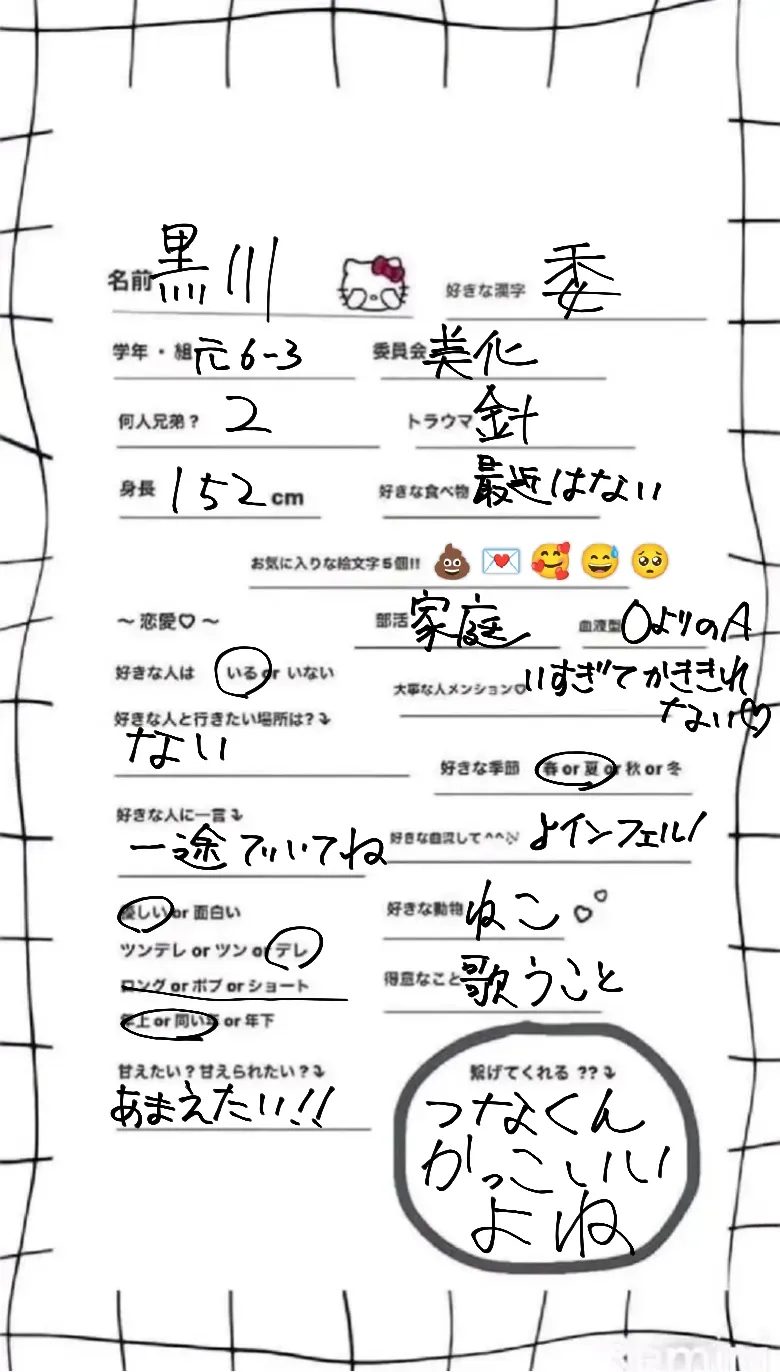 名前 黒川
好きな漢字 委
学年・組 元6-3
委員会 美化
何人兄弟? 2
トラウマ 針
身長 152cm
好きな食べ物 最近はない
お気に入りな絵文字5個!! 💩 💌 🥰 😅 🥺
~恋愛♡~
部活 家庭
血液型 OよりのA
好きな人は いる or いない
大事な人メンション♡ いすぎてかききれ
ない♡
好きな人と行きたい場所は?⤵
ない
好きな季節 春 or 夏 or 秋 or 冬
好きな人に一言⤵
一途でいてね
好きな曲渓して^^ よインフェルノ
優しい or 面白い
好きな動物 ねこ♡♡
ツンデレ or ツン or デレ
得意なこと 歌うこと
ロング or ボブ or ショート
年上 or 同い年 or 年下
甘えたい?甘えられたい?⤵
あまえたい!!
繋げてくれる ??⤵
つなくん
かっこいい
よね